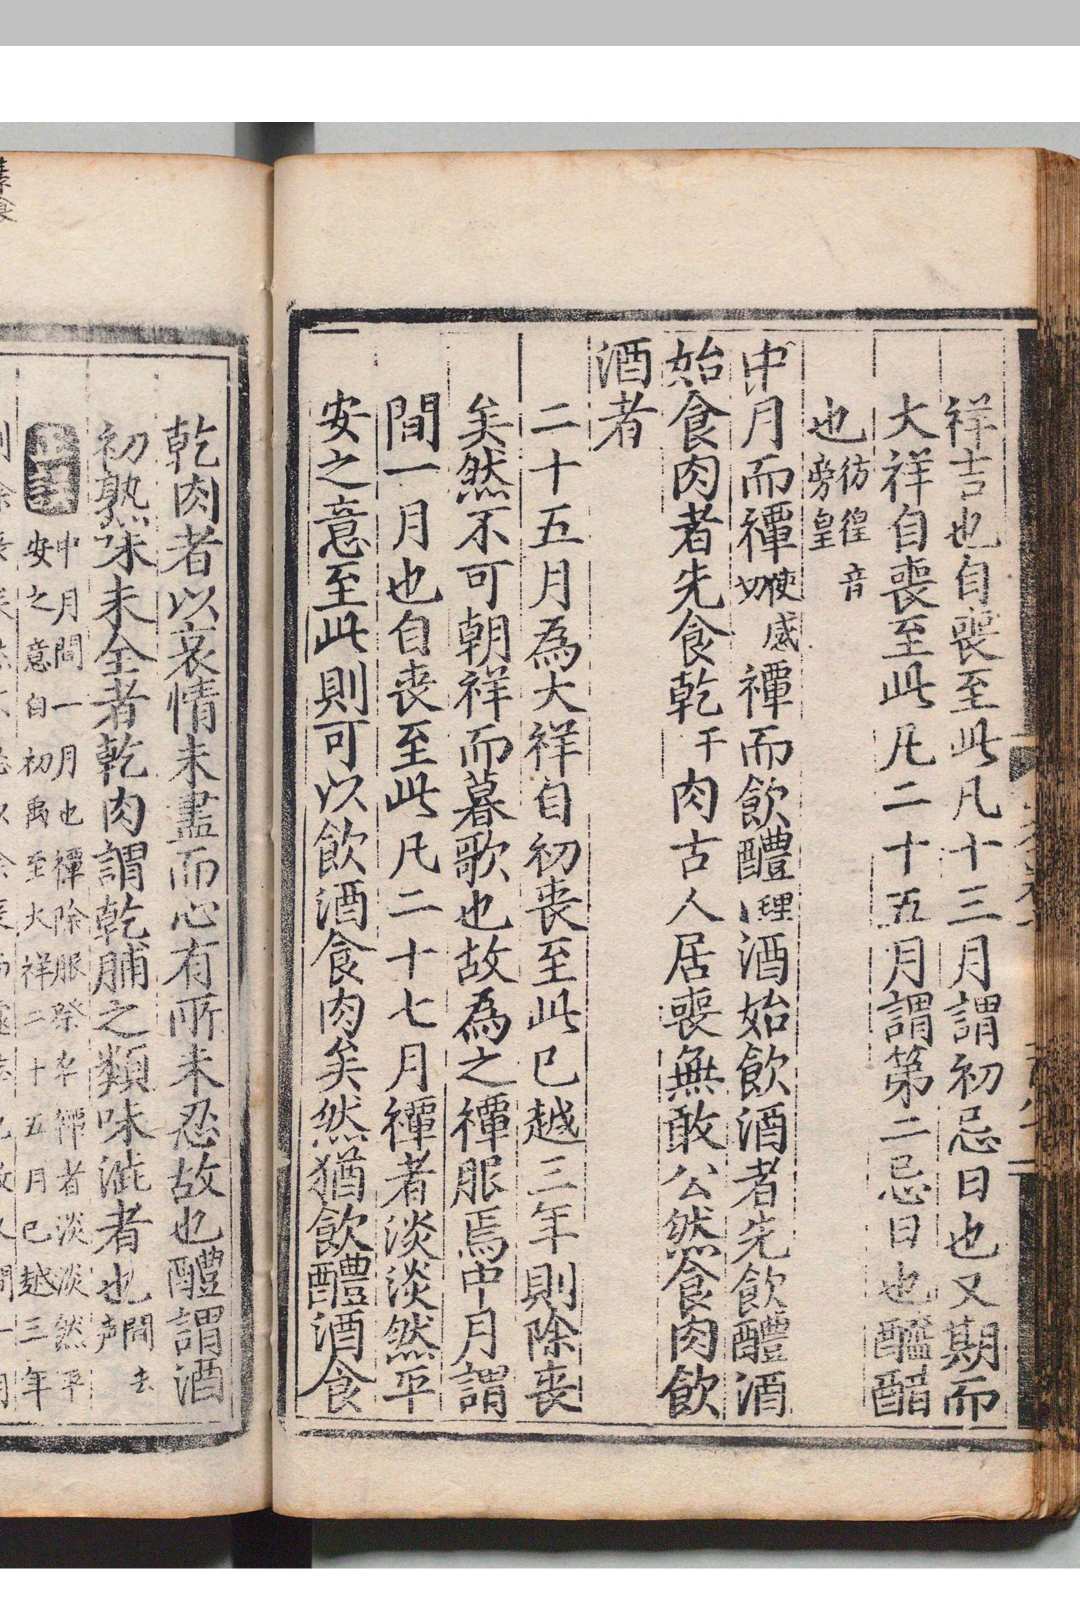 祥吉也自喪至此凡十三月謂初忌日也又期而
大祥自喪至此凡二十五月謂第二忌日也醯醬
也彷徨音旁皇
中月而禫使感切禫而飲醴理酒始飲酒者先飲醴酒
始食肉者先食乾干肉古人居喪無敢公然食肉飲
酒者
二十五月為大祥自初喪至此已越三年則除喪
矣然不可朝祥而暮歌也故為之禫服焉中月謂
間一月也自喪至此凡二十七月禫者淡淡然平
安之意至此則可以飲酒食肉矣然猶飲醴酒食
乾肉者以哀情未盡而心有所未忍故也醴謂酒
初熟味未全者乾肉謂乾脯之類味澁者也間去声
中月間一月也禫除服祭名禫者淡淡然平
安之意自初喪至大祥二十五月已越三年